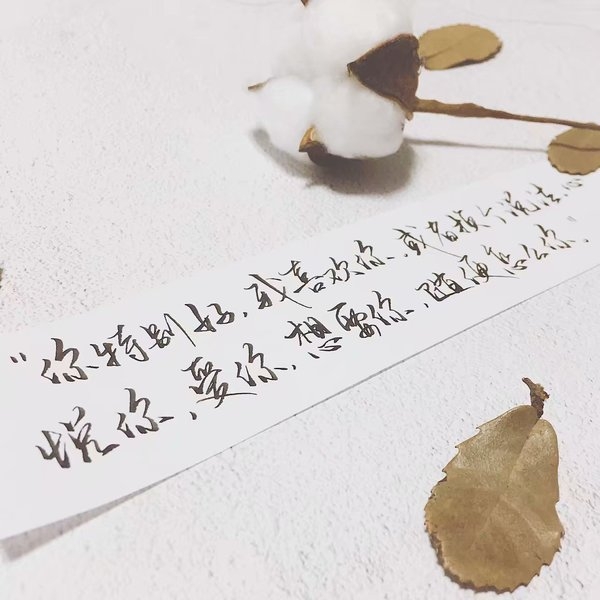 "你特别好,我喜欢你,或者换个说法,心
悦你,爱你,想要你,随便怎么你,"